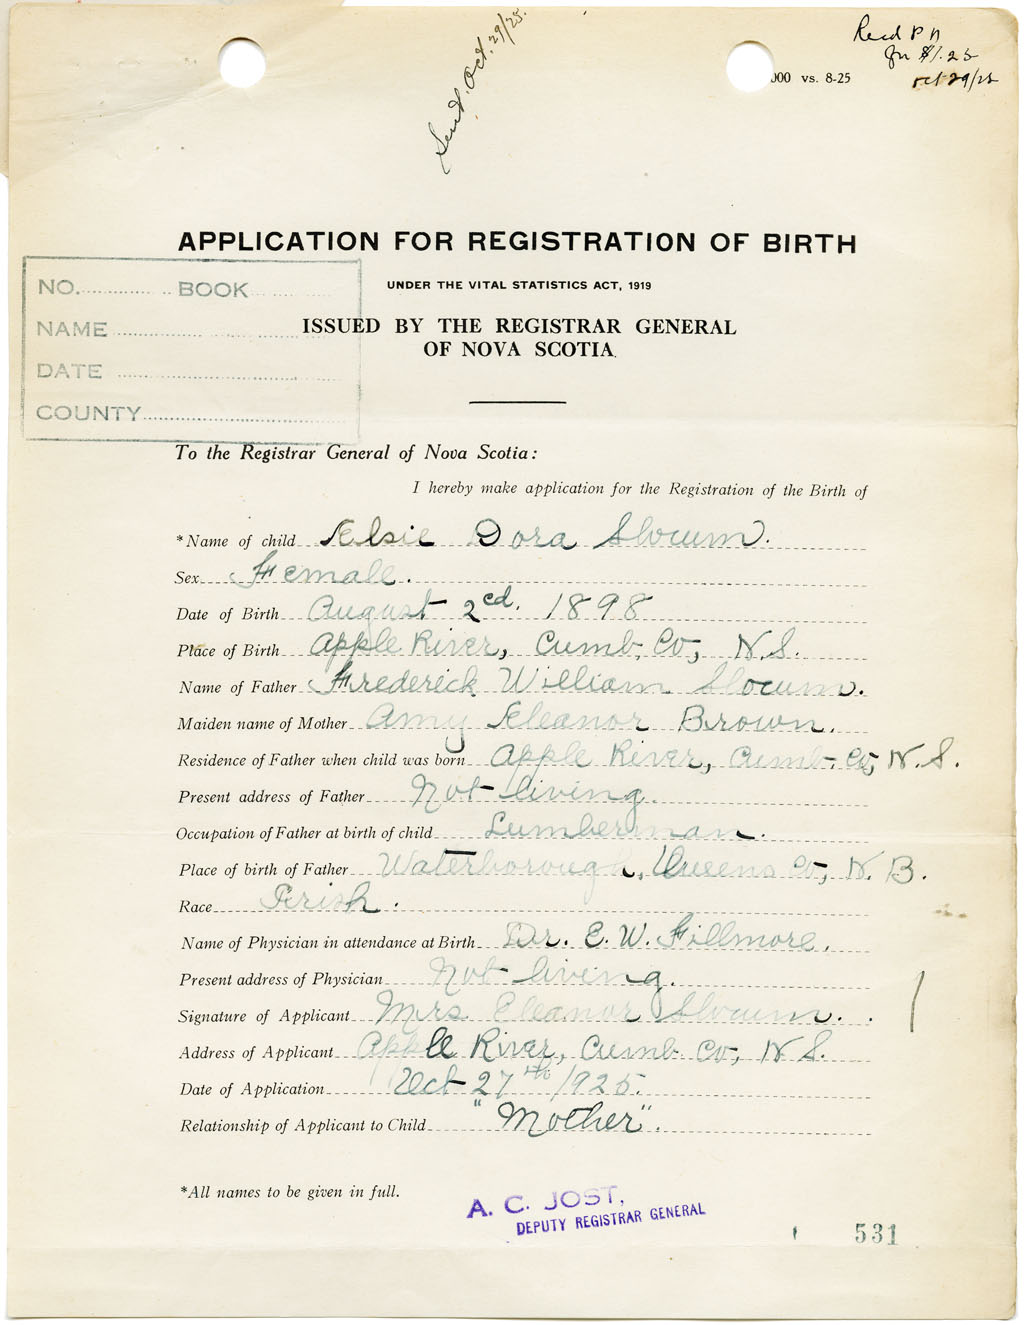 Sent. Oct. 29/25.
Recd P N
for $1.25
Oct 29/25
000 vs. 8-25
APPLICATION FOR REGISTRATION OF BIRTH
UNDER THE VITAL STATISTICS ACT, 1919
ISSUED BY THE REGISTRAR GENERAL
OF NOVA SCOTIA
NO. BOOK
NAME
DATE
COUNTY
To the Registrar General of Nova Scotia:
I hereby make application for the Registration of the Birth of
*Name of child Elsie Dora Slocum.
Sex Female.
Date of Birth August 2cd. 1898
Place of Birth Apple River, Cumb. Co, N.S.
Name of Father Frederick William Slocum.
Maiden name of Mother Amy Eleanor Brown.
Residence of Father when child was born Apple River, Cumb. Co, N.S.
Present address of Father Not living.
Occupation of Father at birth of child Lumberman.
Place of birth of Father Waterborough, Queens Co, N.B.
Race Irish.
Name of Physician in attendance at Birth Dr. E. W. Fillmore.
Present address of Physician Not living.
Signature of Applicant Mrs Eleanor Slocum.
Address of Applicant Apple River, Cumb Co, N.S.
Date of Application Oct 27th 1925.
Relationship of Applicant to Child "Mother".
*All names to be given in full.
A. C. JOST,
DEPUTY REGISTRAR GENERAL
531